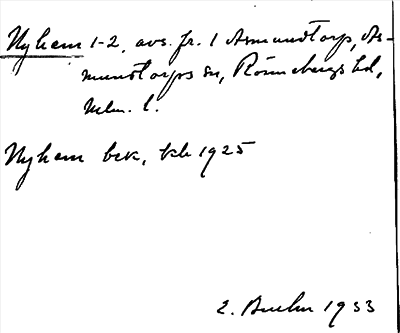 Nyhem 1-2, avs. fr. 1 Asmundtorp, As-
mundtorps sn, Rönnebergs hd,
Mlm. l.
Nyhem bek, kb 1925
E. 1933